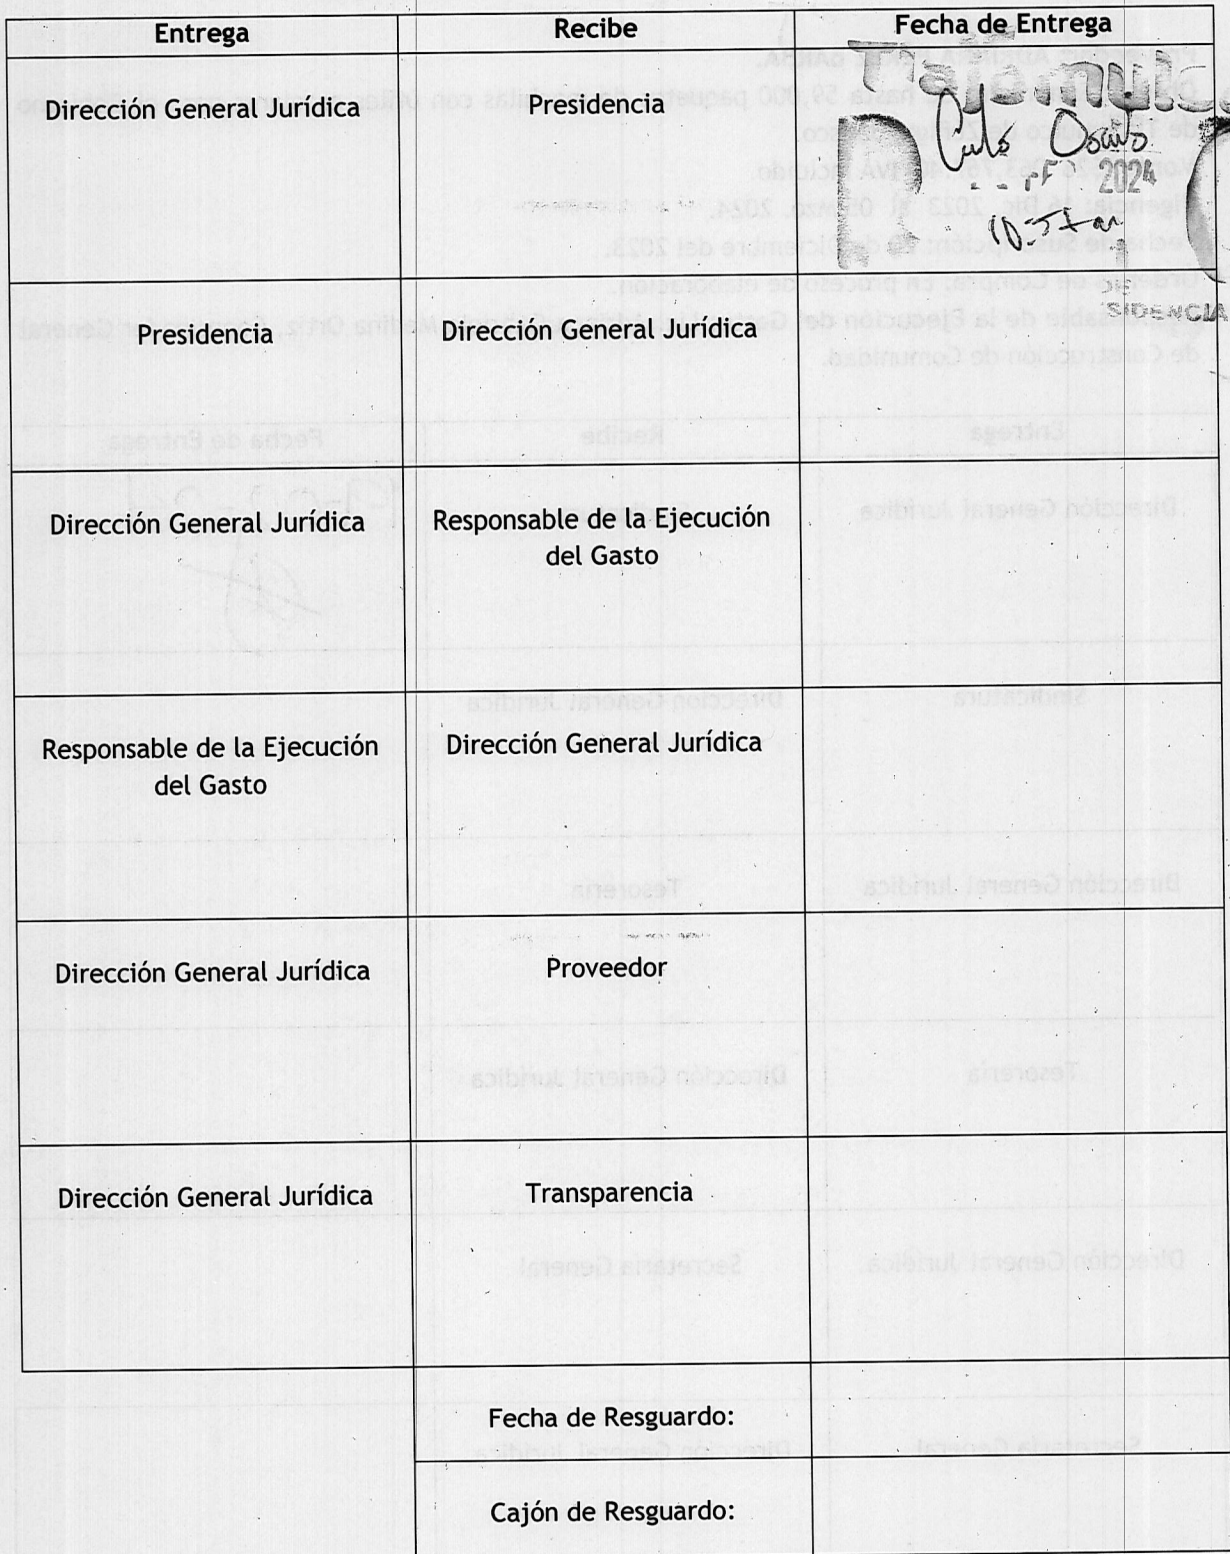 Entrega Recibe Fecha de Entrega
Dirección General Jurídica Presidencia
2024
SIDENCIA
Presidencia Dirección General Jurídica
Dirección General Jurídica Responsable de la Ejecución
del Gasto
Responsable de la Ejecución Dirección General Jurídica
del Gasto
Dirección General Jurídica Proveedor
Dirección General Jurídica Transparencia
Fecha de Resguardo:
Cajón de Resguardo: